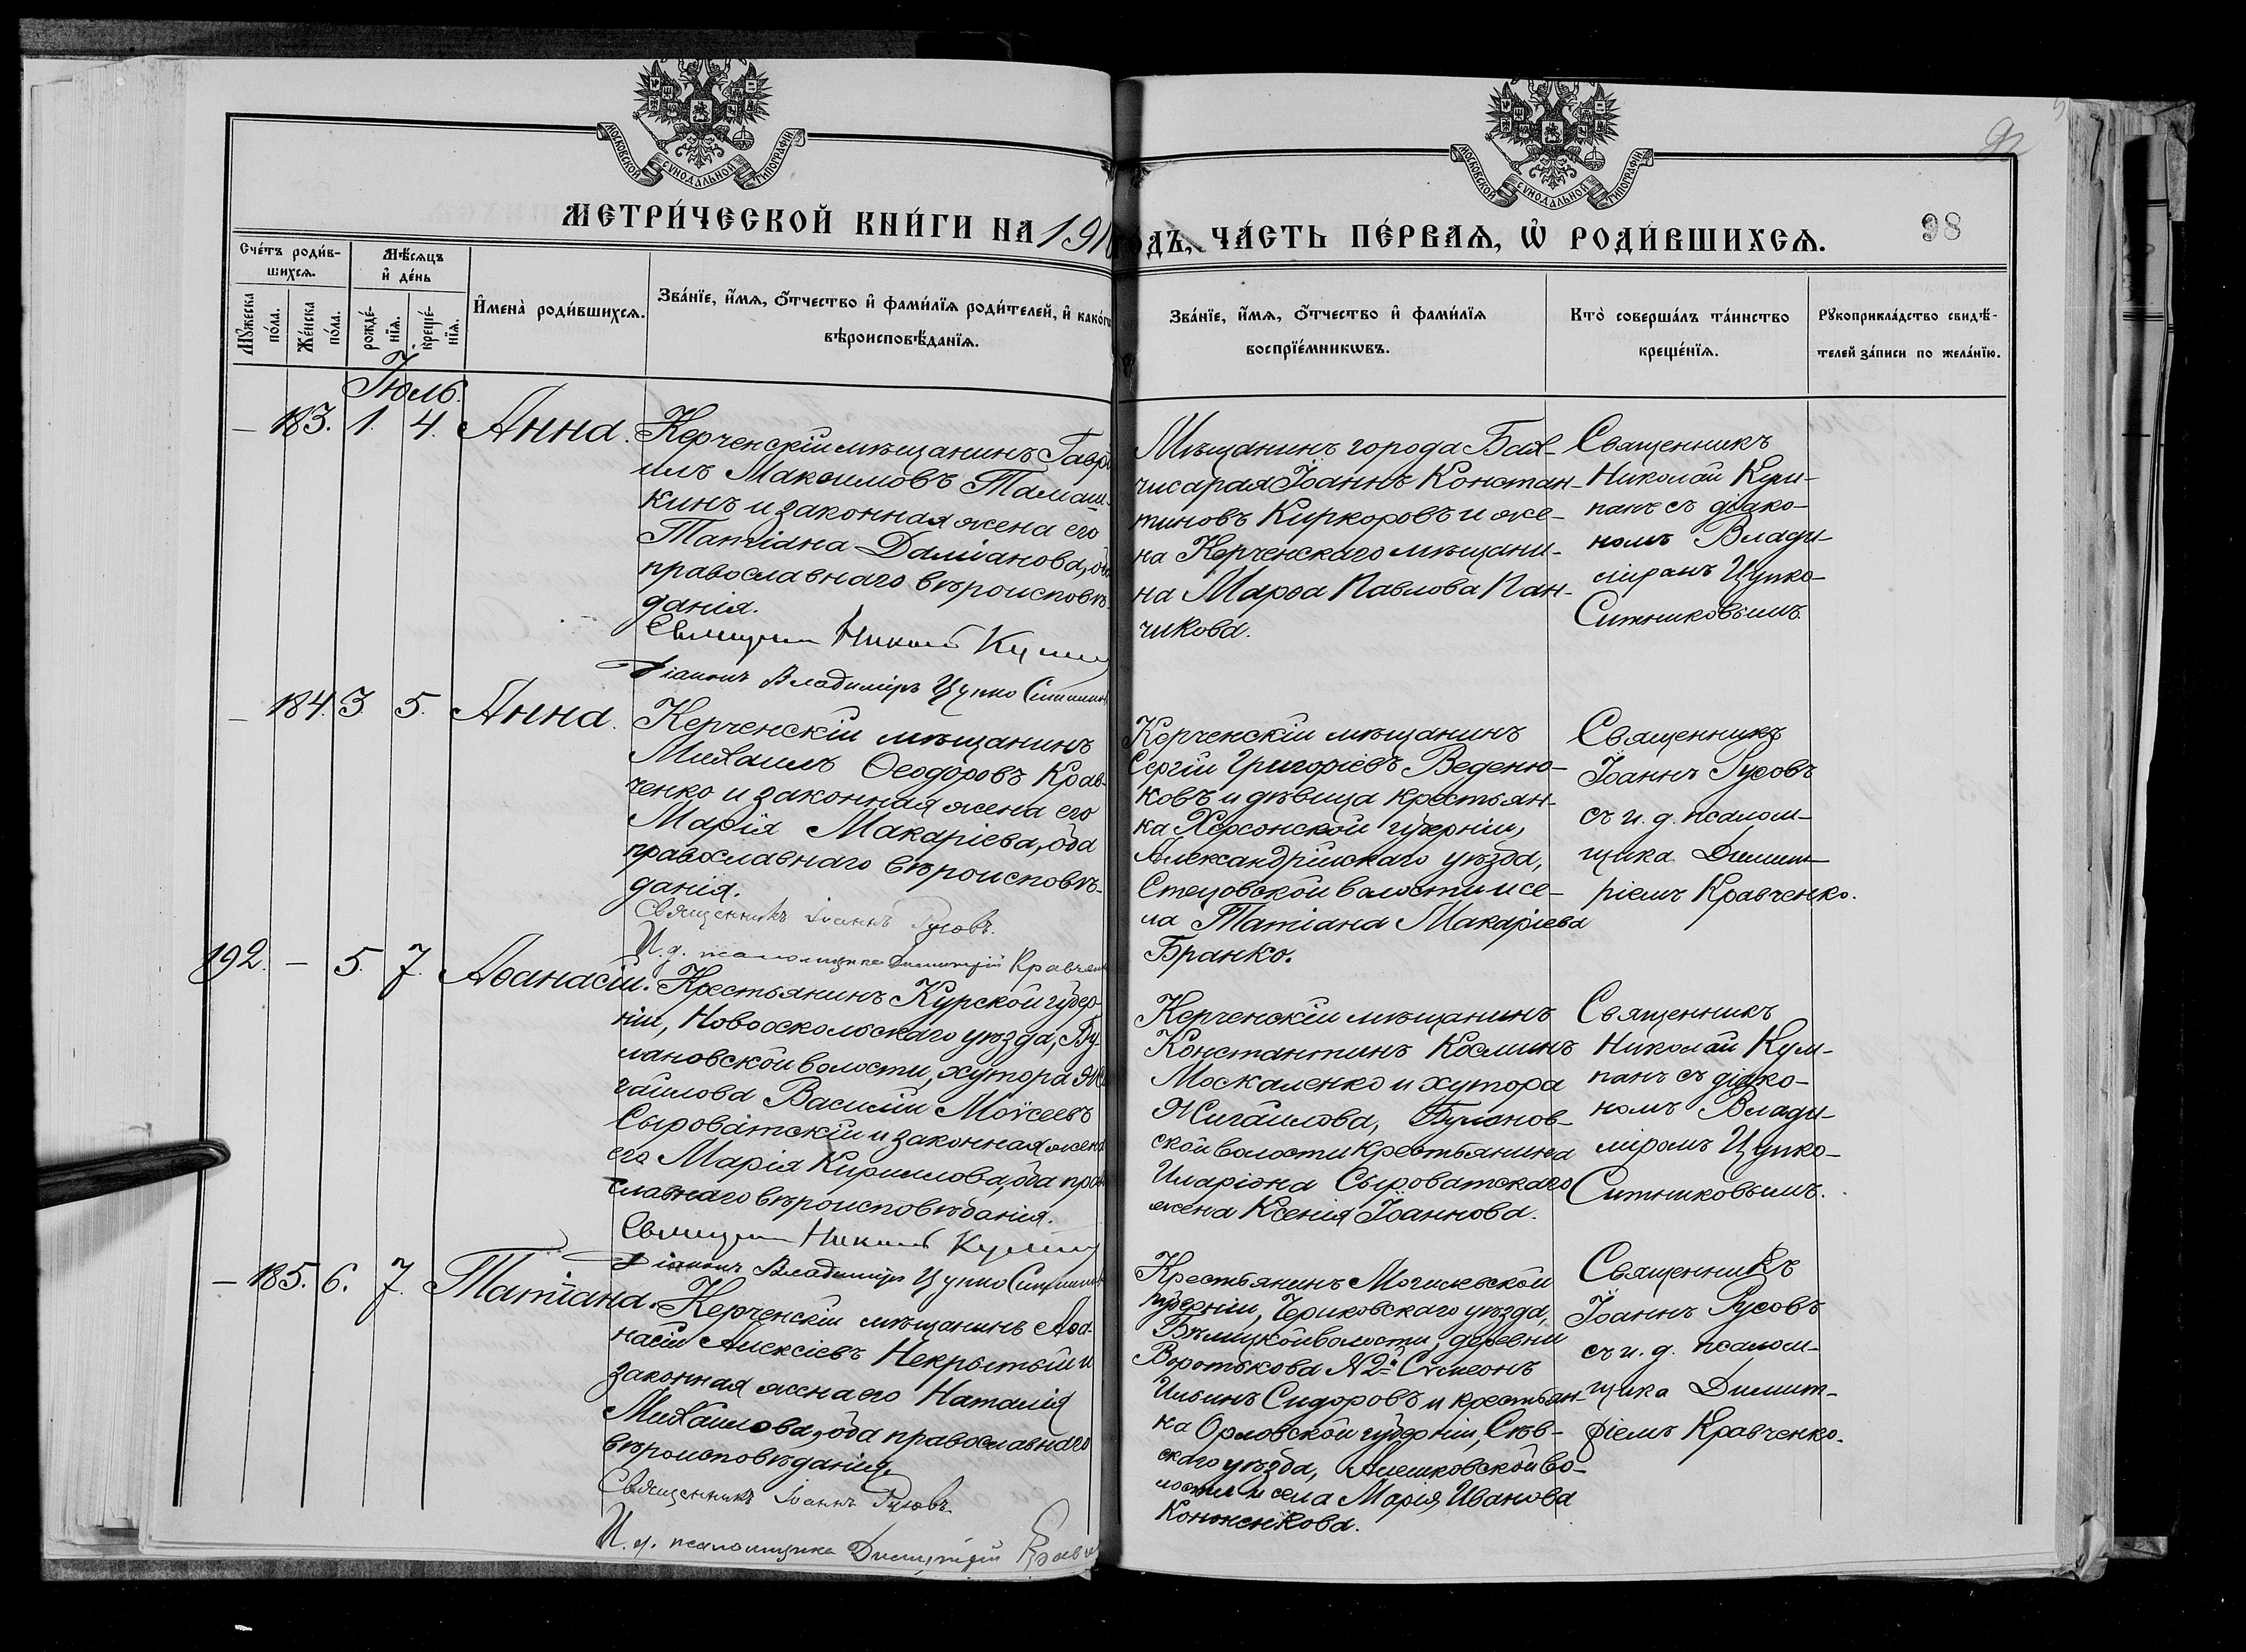 МОСКОВСКОЙ СѴНОДАЛЬНОЙ ТИПОГРАФІИ
МОСКОВСКОЙ СѴНОДАЛЬНОЙ ТИПОГРАФІИ
92
МЕТРИ́ЧЕСКОЙ КНИ́ГИ НА 191
ОДЪ, ЧА́СТЬ ПЕ́РВАЯ, Ѡ҆ РОДИ́ВШИХСЯ.
98
Сче́тъ роди́в-
шихсѧ.
Мѣ́сѧцъ
и҆ де́нь
Мꙋ́жеска
по́ла.
Же́нска
по́ла.
рожде́-
нїѧ.
креще́-
нїѧ.
И҆мена̀ роди́вшихсѧ.
Зва́нїе, и҆́мѧ, ѻ҆́тчество и҆ фами́лїѧ роди́телей, и҆ како́гѡ
вѣроисповѣ́данїѧ.
Зва́нїе, и҆́мѧ, ѻ҆́тчество и҆ фами́лїѧ
воспрїе́мникѡвъ.
Кто̀ соверша́лъ та́инство
креще́нїѧ.
Рꙋкоприкла́дство свидѣ́-
телей за́писи по жела́нїю.
Іюль.
— 183. 1. 4. Анна.
Керченскій мѣщанинъ Гаврі
илъ Максимовъ Тамаш-
кинъ и законная жена его
Татіана Даміанова, оба
православнаго вѣроисповѣ-
данія.
Священникъ Николай Кулипанъ
Діаконъ Владиміръ Цупко Ситников
Мѣщанинъ города Бах-
чисарая Іоаннъ Констан-
тиновъ Киркоровъ и же-
на Керченскаго мѣщани-
на Марѳа Павлова Пан-
чикова.
Священникъ
Николай Кули-
панъ съ діако-
номъ Влади-
міромъ Цупко-
Ситниковымъ.
— 184. 3. 5. Анна.
Керченскій мѣщанинъ
Михаилъ Ѳеодоровъ Крав-
ченко и законная жена его
Марія Макаріева, оба
православнаго вѣроисповѣ-
данія.
Священникъ Іоаннъ Русовъ.
И. д. псаломщика Димитрій Кравченко
Керченскій мѣщанинъ
Сергій Григоріевъ Веденю-
ковъ и дѣвица крестьян-
ка Херсонской губерніи,
Александрійскаго уѣзда,
Стецовской волости и се-
ла Татіана Макаріева
Бранко.
Священникъ
Іоаннъ Русовъ
съ и. д. псалом-
щика Димит-
ріемъ Кравченко.
192. — 5. 7. Аѳанасій.
Крестьянинъ Курской губер-
ніи, Новооскольскаго уѣзда, Бу-
лановской волости, хутора Жи
гайлова Василій Моѵсеевъ
Сыроватскій и законная жена
его Марія Кириллова, оба право
славнаго вѣроисповѣданія.
Священникъ Николай Кулипанъ
Діаконъ Владиміръ Цупко Ситников
Керченскій мѣщанинъ
Константинъ Косминъ
Москаленко и хутора
Жигайлова, Буланов-
ской волости крестьянина
Иларіона Сыроватскаго
жена Ксенія Іоаннова.
Священникъ
Николай Кули-
панъ съ діако-
номъ Влади-
міромъ Цупко-
Ситниковымъ.
— 185. 6. 7. Татіана.
Керченскій мѣщанинъ Аѳа-
насій Алексіевъ Некрытый и
законная жена его Наталія
Михаилова, оба православнаго
вѣроисповѣданія.
Священникъ Іоаннъ Русовъ.
И. д. псаломщика Димитрій Кравче
Крестьянинъ Могилевской
губерніи, Чериковскаго уѣзда,
Бѣлицкой волости, деревни
Воротькова №2й Сѵмеонъ
Ильинъ Сидоровъ и крестьян-
ка Орловской губерніи, Сѣв-
скаго уѣзда, Алешковской во-
лости и села Марія Иванова
Конюженкова.
Священникъ
Іоаннъ Русовъ
съ и. д. псалом-
щика Димит-
ріемъ Кравченко.